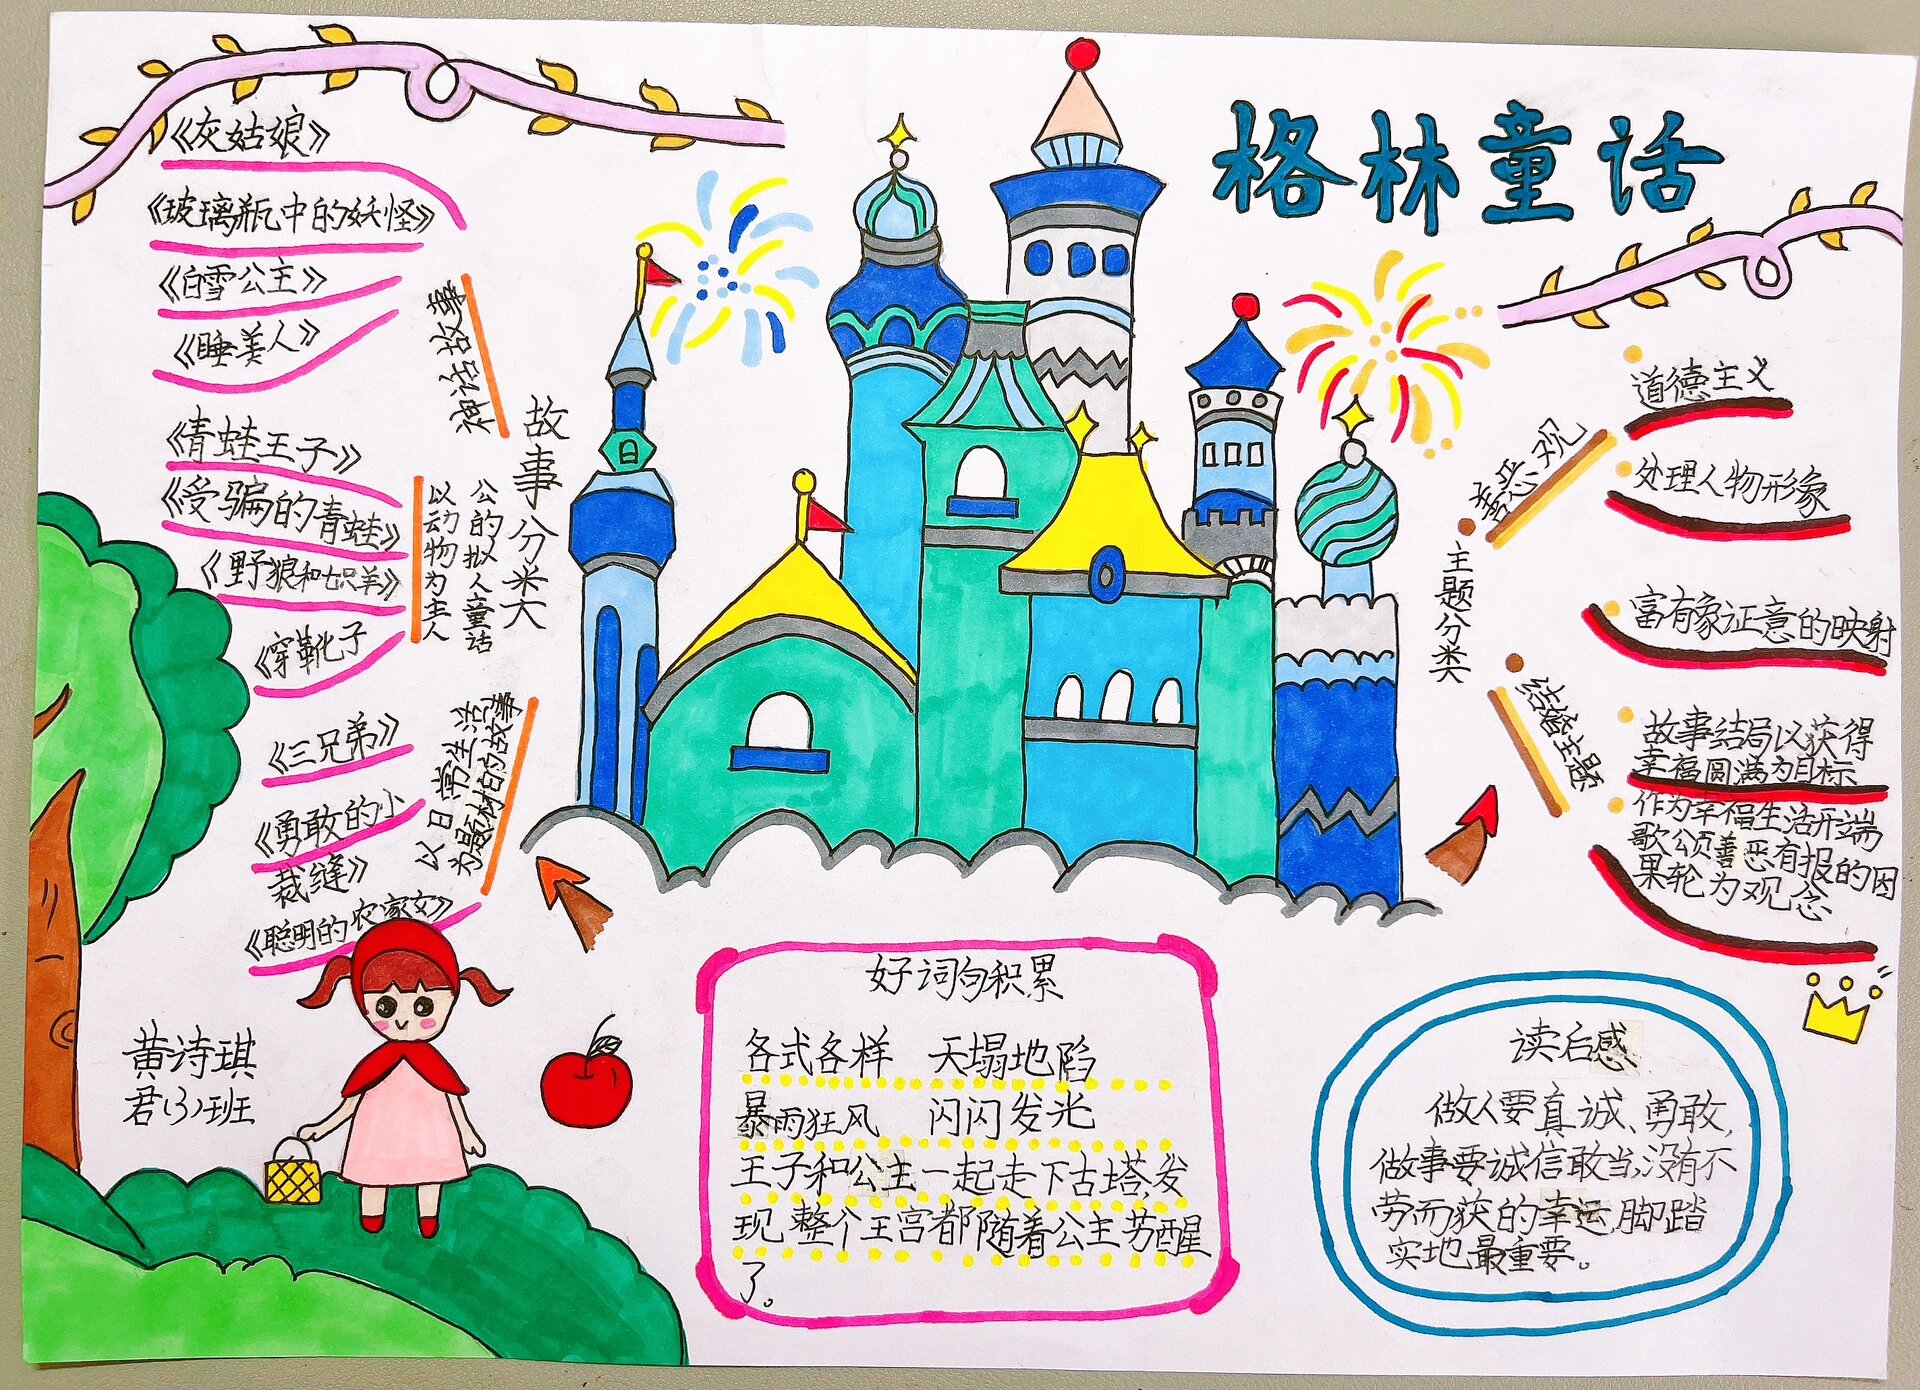 格林童话
《灰姑娘》
《玻璃瓶中的妖怪》
《白雪公主》
《睡美人》
神话故事
《青蛙王子》
《受骗的青蛙》
《野狼和七只羊》
《穿靴子
以动物为主人
公的拟人童话
《三兄弟》
《勇敢的小
裁缝》
《聪明的农家女》
以日常生活
为题材的故事
故事分类
主题分类
善恶观
道德主义
处理人物形象
结婚主题
富有象证意的映射
故事结局以获得
幸福圆满为目标
作为幸福生活开端
歌颂善恶有报的因
果轮为观念
黄诗琪
君(3)班
好词句积累
各式各样 天塌地陷
暴雨狂风 闪闪发光
王子和公主一起走下古塔,发
现,整个王宫都随着公主苏醒
了。
读后感
做人要真诚、勇敢,
做事要诚信敢当,没有不
劳而获的幸运,脚踏
实地最重要。